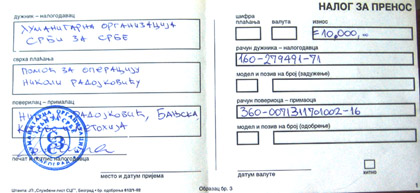 НАЛОГ ЗА ПРЕНОС
дужник – налогодавац
ХУМАНИТАРНА ОРГАНИЗАЦИЈА
СРБИ ЗА СРБЕ
сврха плаћања
ПОМОЋ ЗА ОПЕРАЦИЈУ
НИКОЛИ РАДОЈКОВИЋУ
поверилац – прималац
РАДОЈКОВИЋ, БАЊСКА
печат и потпис налогодавца
место и датум пријема
шифра плаћања
валута
износ
10.000,=
рачун дужника – налогодавца
160-279491-71
модел и позив на број (задужење)
рачун повериоца – примаоца
360-0071311701002-16
модел и позив на број (одобрење)
датум валуте
хитно
Образац бр. 3